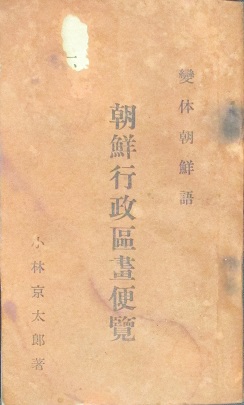 變体朝鮮語
朝鮮行政區畫便覽
小林京太郎著